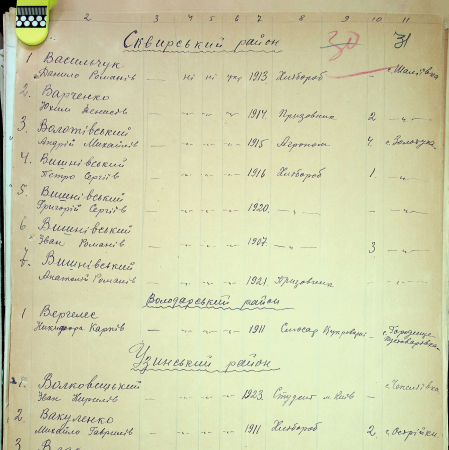 2 3 4 5 6 7 8 9 10 11
Сквирський район 30 31
1 Васильчук
Данило Романів — ні ні укр 1913 Хлібороб —
2. Варченко
1914 Призовник 2 —„—
3. Волотівський
Андрій Михайлів — —„— —„— —„— 1915 Агроном 4.
4. Вишнівський
Петро Сергіїв — —„— —„— —„— 1916 Хлібороб 1. —„—
5. Вишнівський
Григорій Сергіїв — —„— —„— —„— 1920. —„— — —„—
6 Вишнівський
Іван Романів — —„— —„— —„— 1907. —„— 3 —„—
7. Вишнівський
Анатолій Романів — —„— —„— —„— 1921 Призовник — —„—
Володарський район
1 Вергелес
Никифора Карпів — —„— —„— —„— 1911 Слюсар — Городище
Узинський район
1. Волковецький
Іван Кирилів — —„— —„— —„— 1923. Студент м Київ —
2. Вакуленко
Михайло Гаврилів — —„— —„— —„— 1911 Хлібороб 2. с. Острійки
3